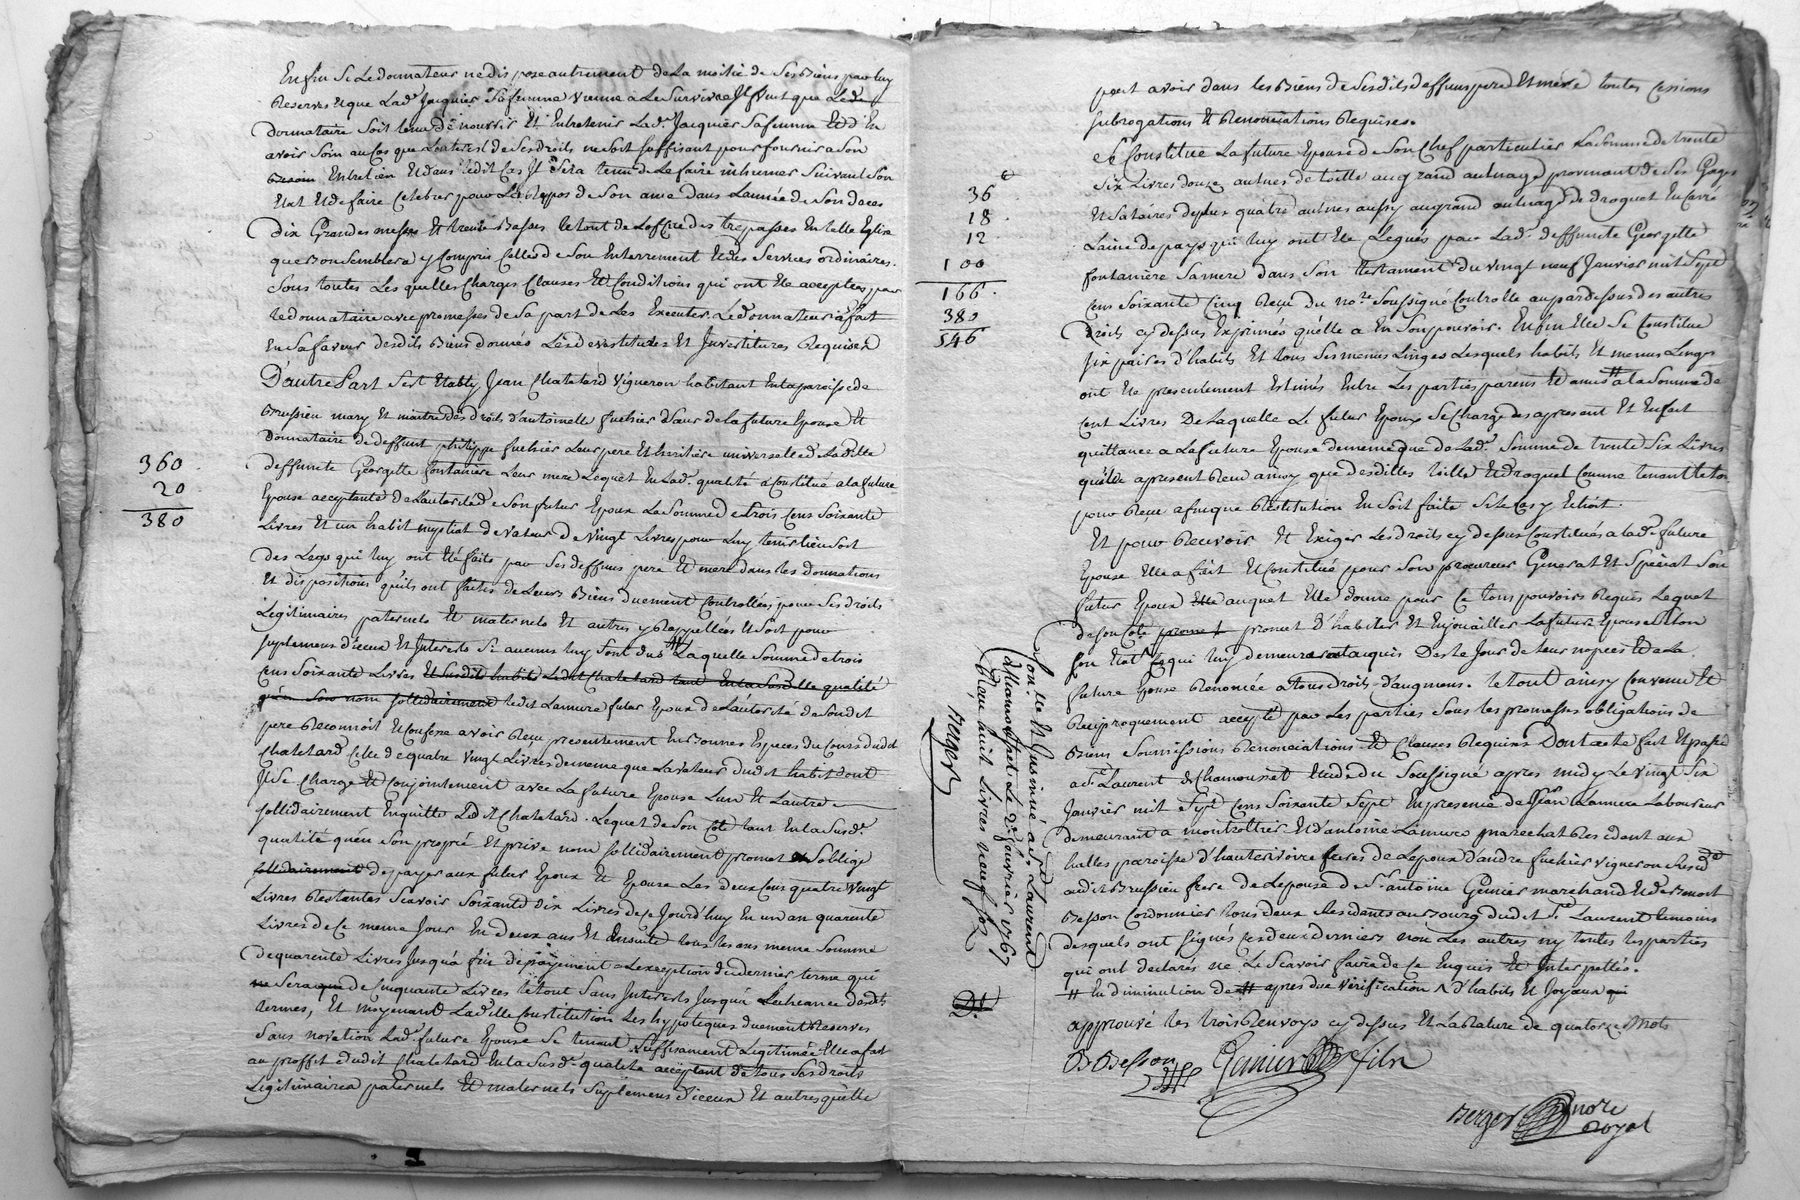 Enfin si Le donnateur ne dispose autrement de La moitié de ses Biens par luy
Reservés et que Lad.e Jacquier sa femme vienne a Le survivre Il veut que Le d.
donnataire soit tenu de nourrir et Entretenir Lad.e Jacquier sa femme et d'En
avoir soin au Cas que L'interest de ses droits ne soit suffisant pour fournir a son
besoin Entretien et dans ledit Cas Il sera tenu de Le faire inhumer suivant son
Etat et de faire Celebrer pour Le Repos de son ame dans L'année de son deces
dix Grandes messes et trente Basses le tout de L'office des trepasses En telle Eglise
que Bon semblera y Compris Celles de son Enterrement et des services ordinaires.
sous toutes Les quelles Charges Clauses et Conditions qui ont ete acceptées par
le donnataire avec promesses de sa part de Les Executer. Le donnateur a fait
En sa faveur desdits Biens donnés Les devestitures et Investitures Requises
D'autre Part s'est Etably Jean Chatelard Vigneron habitant En la paroisse de
Brussieu mary et maitre des droits d'antoinette fuchier sœur de la future Epouse et
Donnataire de deffunt philippe fuchier Leur pere et heritiere universelle de Ladite
deffunte Georgette fontaniere Leur mere Lequel En Lad.e qualité a Constitué a la future
Epouse acceptante de L'autorité de son futur Epoux La somme de trois Cens soixante
Livres et un habit nuptial de valeur de vingt Livres pour Luy tenir lieu soit
des Legs qui luy ont été faits par ses deffuns pere et mere dans les donnations
et dispositions qu'ils ont faites de Leurs Biens duement Controllées pour ses droits
Legitimaires paternels et maternels et autres y Rappellées et soit pour
suplemens d'iceux et Interets si aucuns luy sont dus # Laquelle somme de trois
Cens soixante Livres et susdit habit Ledit Chatelard tant En la susd.e qualité
qu'en son nom sollidairement ledit Lamure futur Epoux de L'autorité de sondit
pere Reconnoit et Confesse avoir Reçu presentement En Bonnes Especes du Cours dudit
Chatelard Celle de quatre vingt Livres de meme que La valeur dudit habit dont
Il se Charge et Conjointement avec La future Epouse L'un et L'autre
sollidairement En quitte Ledit Chatelard. Lequel de son Coté tant En la susd.e
qualité qu'en son propre et privé nom sollidairement promet et s'oblige
sollidairement de payer aux futur Epoux et Epouse Les deux Cens quatre vingt
Livres Restantes sçavoir soixante dix Livres de Ce Jourd'huy En un an quarente
Livres de Ce meme Jour En deux ans et Ensuite tous les ans meme somme
de quarente Livres Jusqu'a fin de payement a L'exception du dernier terme qui
ne sera que de Cinquante Livres le tout sans Interets Jusqu'a L'echeance desdits
termes, et moyenant Ladite Constitution Les hypoteques duement Reservés
sans novation Lad.e future Epouse se tenant suffisament Legitimée Elle a fait
au proffit dudit Chatelard En la susd.e qualité acceptant de tous ses droits
Legitimaires paternels et maternels suplemens d'iceux et autres qu'elle
360
20
380
peut avoir dans les Biens de sesdits deffuns pere et mere toutes Cessions
subrogations et Renonciations Requises.
se Constitue La future Epouse de son Chef particulier La somme de trente
six Livres douze aulnes de toille au grand aulnage provenant de ses Gages
et salaires de plus quatre aulnes aussy au grand aulnage de droguet En Carré
Laine de pays qui luy ont été Legués par Lad.e deffunte Georgette
fontaniere sa mere dans son testament du vingt neuf Janvier mil sept
Cens soixante Cinq Reçu du no.re soussigné Controllé au par dessus des autres
Droits cy dessus Exprimés qu'elle a En son pouvoir. Enfin Elle se Constitue
six paires d'habits et tous ses menus Linges Lesquels habits et menus Linges
ont été presentement Estimés Entre Les parties parens et amis # a la somme de
Cent Livres De Laquelle Le futur Epoux se Charge des apresent et En fait
quittance a La future Epouse de meme que de Lad.e somme de trente six Livres
qu'il a apresent Reçu ainsy que desdittes toille et droguet Comme tenant le tout
pour Reçu afin que Restitution En soit faite si Le Cas y Echoit.
Et pour Recevoir et Exiger Les droits cy dessus Constitués a lad.e future
Epouse Elle a fait et Constitué pour son procureur General et special son
futur Epoux Elle auquel Elle donne pour Ce tous pouvoirs Requis Lequel
de son Coté prome t promet d'habiller et Enjoailler La future Epouse selon
son Etat Ce qui luy demeurera acquis Des Le Jour de leur nopces et de La
future Epouse Renoncée a tous droits d'augmens. le tout ainsy Convenu et
Reciproquement accepté par Les parties sous les promesses obligations de
Biens soumissions Renonciations et Clauses Requises Dont acte fait et passé
a S.t Laurent de Chamousset Etude du soussigné apres midy Le vingt six
Janvier mil sept Cens soixante sept En presence de Jean Lamure Laboureur
demeurant a montrottier et d'antoine Lamure marechal Residant aux
halles paroisse d'hauterivoire freres de L'epoux d'andre fuchier vigneron Resid.t
audit Brussieu frere de L'epouse de S.r antoine Genier marchand et de Benoit
Besson Cordonnier tous deux Residents au Bourg dudit S.t Laurent temoins
desquels ont signés Ces deux derniers non Les autres ny toutes les parties
qui ont declarés ne Le sçavoir faire de Ce Enquis et Interpellés.
# En diminution de # apres due verification ^ d'habits et Joyaux qui
approuvé les trois Renvoys cy dessus et La Rature de quatorze mots
B Besson Genier fils
Berger no.re royal
36
18
12
100
166
380
546
Con.lé et Insinué a S.t Laurent
de Chamousset Le 2.e fevrier 1767
Reçu huit Livres neuf sols
Berger